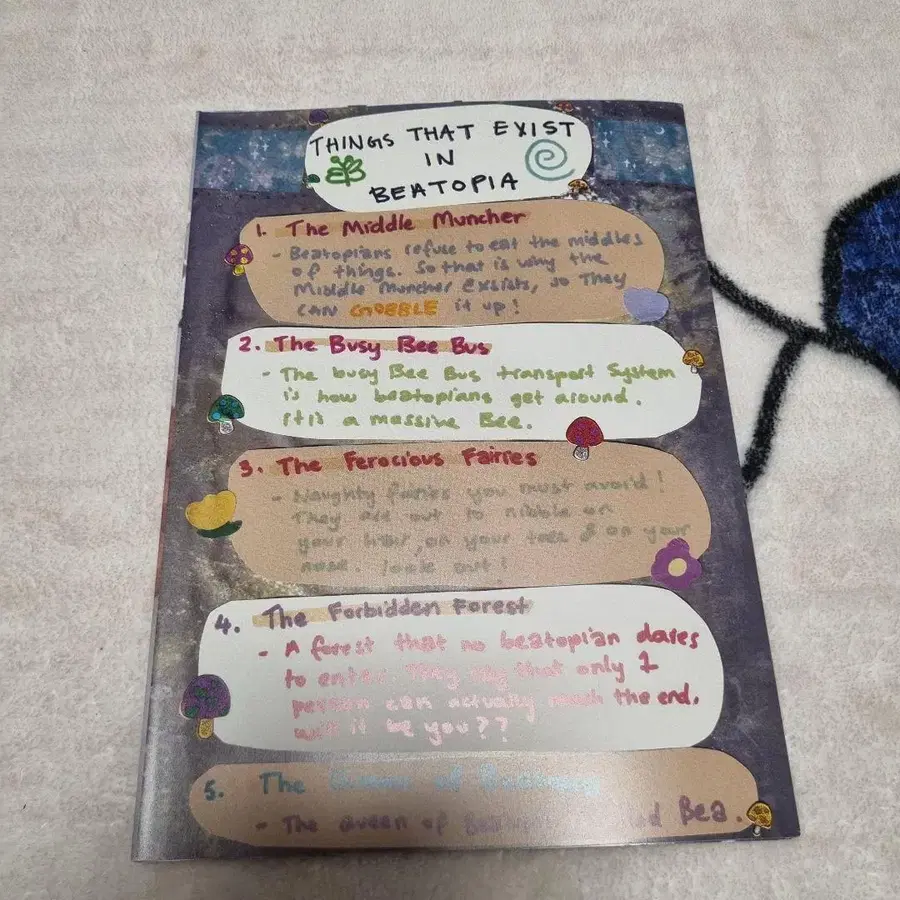 THINGS THAT EXIST
IN
BEATOPIA
1. The Middle Muncher
- Beatopians refuse to eat the middles
of things. So that is why the
Middle Muncher exists, so They
CAN GOBBLE it up!
2. The Busy Bee Bus
- The busy Bee Bus transport System
is how beatopians get around.
it is a massive Bee.
3. The Ferocious Fairies
- Naughty fairies you must avoid!
They are out to nibble on
your hair, on your toes & on your
nose. look out!
4. The Forbidden Forest
- A forest that no beatopian dares
to enter. They say that only 1
person can actually reach the end.
will it be you??
5. The Queen of
- The Queen of Bea.